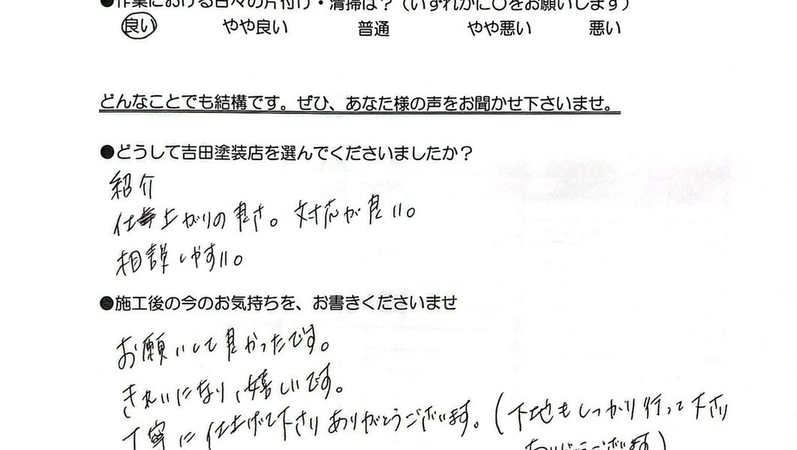 ●作業における日々の片付け・清掃は？（いずれかに〇をお願いします）
良い やや良い 普通 やや悪い 悪い
どんなことでも結構です。ぜひ、あなた様の声をお聞かせ下さいませ。
●どうして吉田塗装店を選んでくださいましたか？
紹介
仕事上がりの良さ。対応が良い。
相談しやすい。
●施工後の今のお気持ちを、お書きくださいませ
お願いして良かったです。
きれいになり、嬉しいです。
丁寧に仕上げて下さりありがとうございます。（下地もしっかり行って下さり
ありがとうございます）